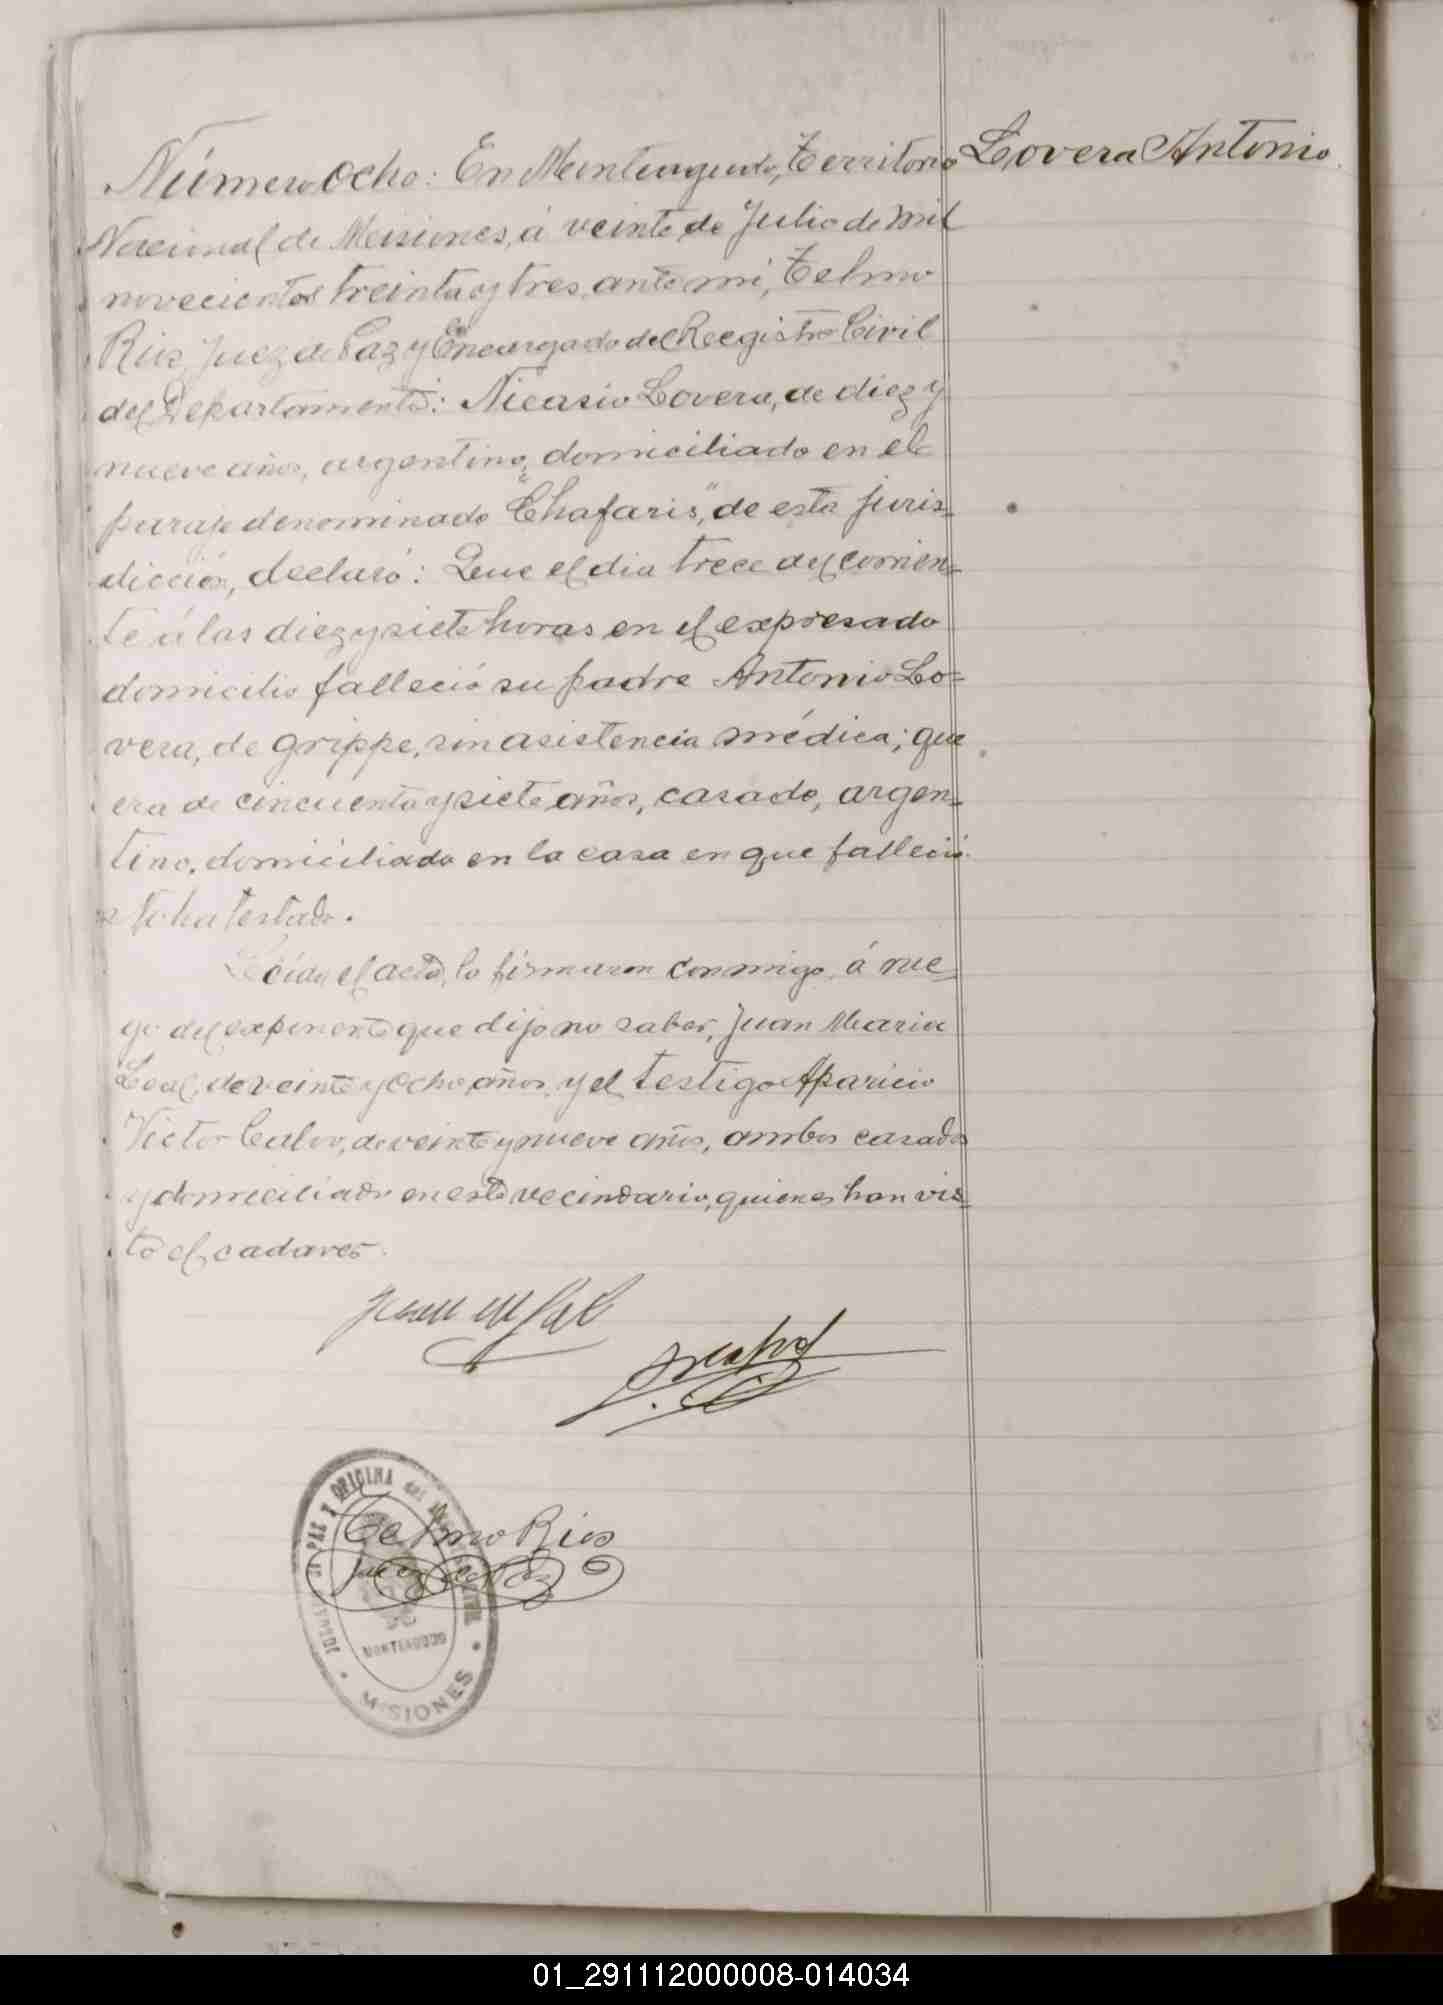 Lovera Antonio.
Número Ocho: En Monteagudo, Territorio
Nacional de Misiones, á veinte de Julio de mil
novecientos treinta y tres, ante mi, Telmo
Rios, Juez de Paz y Encargado del Reegistro Civil
del Departamento: Nicasio Lovera, de diez y
nueve años, argentino, domiciliado en el
paraje denominado "Chafaris", de esta juris-
dicción, declaró: Que el dia trece del corrien-
te á las diez y siete horas en el expresado
domicilio falleció su padre Antonio Lo-
vera, de grippe, sin asistencia médica; que
era de cincuenta y siete años, casado, argen-
tino, domiciliado en la casa en que falleció.
No ha testado.
Leída el acta, la firmaron conmigo, á rue-
go del exponente que dijo no saber, Juan Maria
Leal, de veinte y ocho años, y el testigo Aparicio
Victor Calvo, de veinte y nueve años, ambos casados
y domiciliado en este vecindario, quienes han vis-
to el cadaver.
Juan M Leal
Telmo Rios
Juez de Paz
JUZGADO DE PAZ Y OFICINA del REGISTRO CIVIL
MONTEAGUDO
MISIONES
01_291112000008-014034